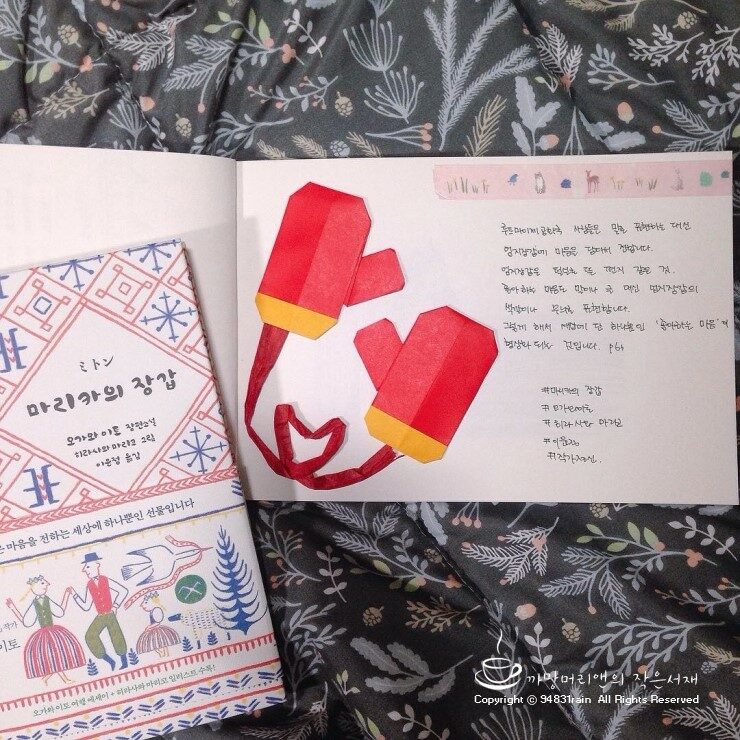 ミトン
마리카의 장갑
오가와 이토 장편소설
히라사와 마리코 그림
이윤정 옮김
마음을 전하는 세상에 하나뿐인 선물입니다
작가
이토
오가와 이토 여행 에세이 + 히라사와 마리코 일러스트 수록!
루프마이제공화국 사람들은 말로 표현하는 대신
엄지장갑에 마음을 담아서 전합니다.
엄지장갑은 털실로 쓴 편지 같은 것.
좋아하는 마음도 말이나 글 대신 엄지장갑의
색깔이나 무늬로 표현합니다.
그렇게 해서 세상에 단 하나뿐인 '좋아하는 마음'이
형상화 되는 것입니다.
#마리카의 장갑
#오가와이토
#히라사와 마리코
#이윤정
#작가정신.
까망머리앤의 작은서재
Copyright © 94831rain All Rights Reserved